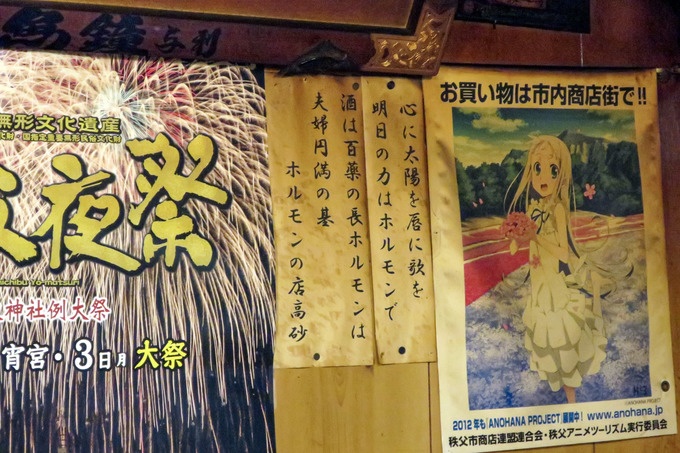 馬鐘
与利
無形文化遺産
財・国指定重要無形民俗文化財
夜祭
ichibu Yo-matsuri
神社例大祭
宵宮・3日月 大祭
心に太陽を唇に歌を
明日の力はホルモンで
酒は百薬の長ホルモンは
夫婦円満の基
ホルモンの店高砂
お買い物は市内商店街で!!
©ANOHANA PROJECT
2012年も「ANOHANA PROJECT」展開中! www.anohana.jp
秩父市商店連盟連合会・秩父アニメツーリズム実行委員会